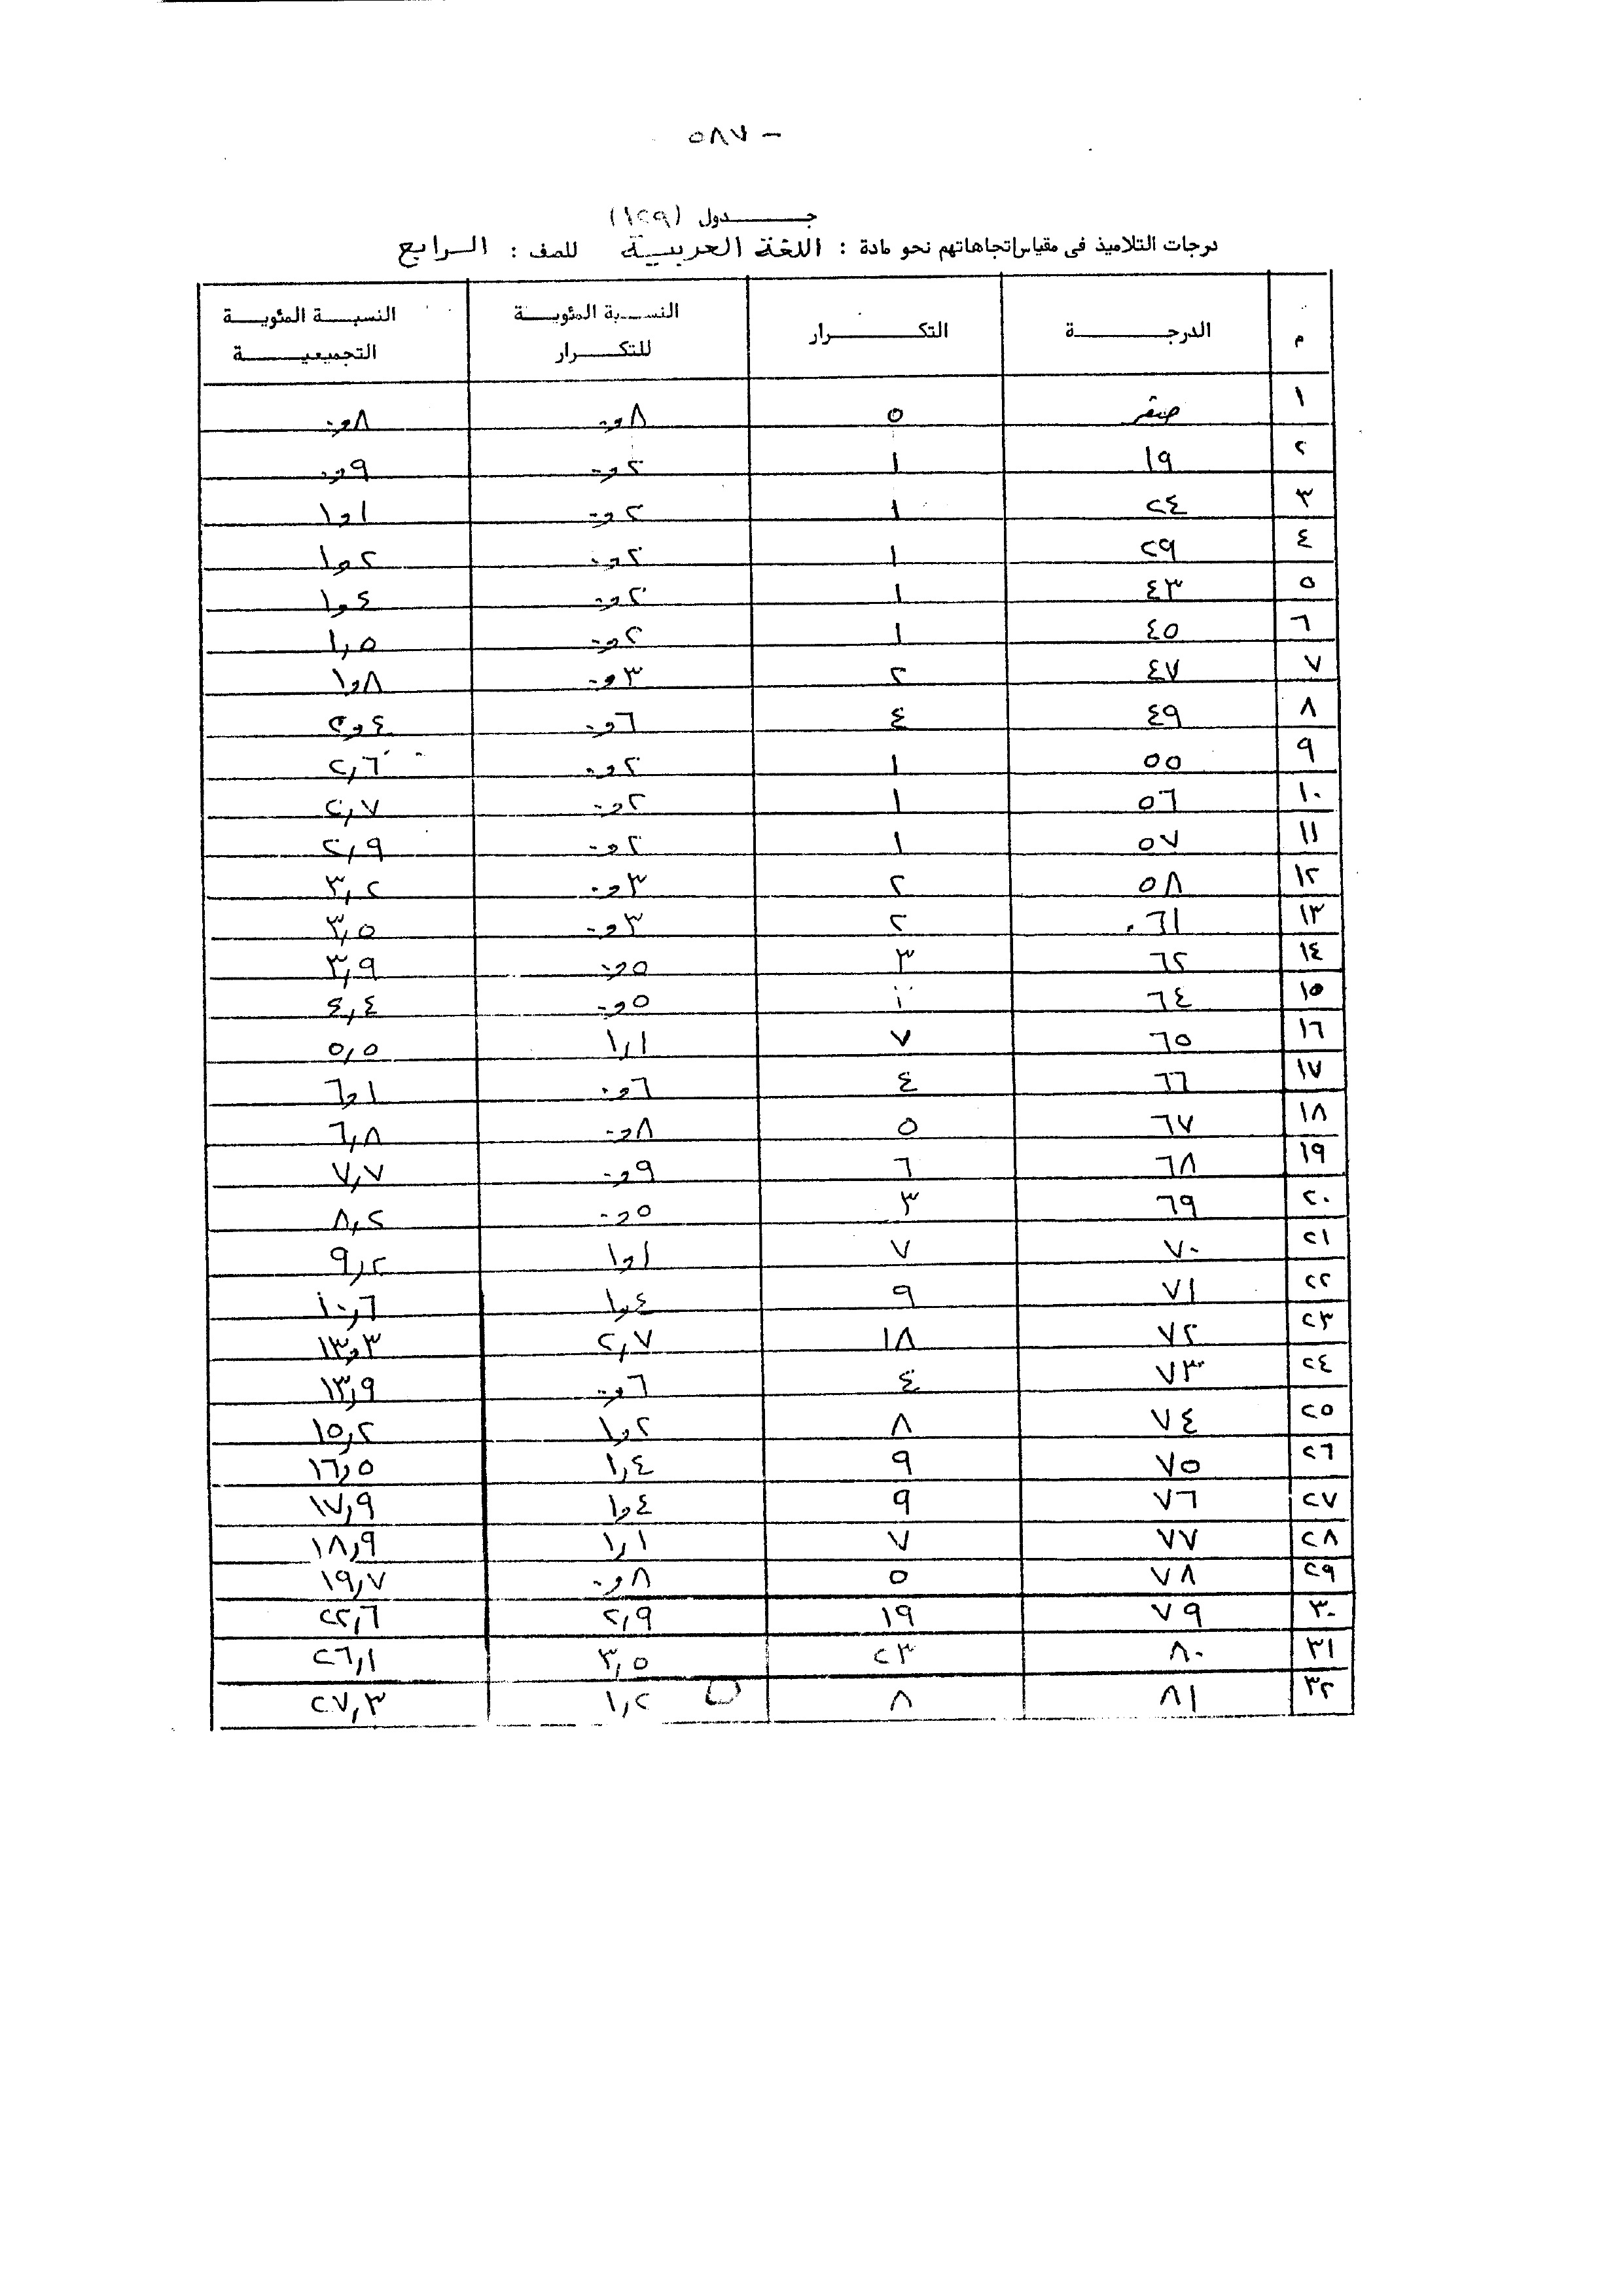 ٥٨٧ –
جدول (١٢٩)
درجات التلاميذ فى مقياس اتجاهاتهم نحو مادة : اللغة العربية للصف : الرابع
م الدرجة التكرار النسبة المئوية للتكرار النسبة المئوية التجميعية
١ صفر ٥ ٠,٨ ٠,٨
٢ ١٩ ١ ٠,٢ ٠,٩
٣ ٢٤ ١ ٠,٢ ١,١
٤ ٢٩ ١ ٠,٢ ١,٢
٥ ٤٣ ١ ٠,٢ ١,٤
٦ ٤٥ ١ ٠,٢ ١,٥
٧ ٤٧ ٢ ٠,٣ ١,٨
٨ ٤٩ ٤ ٠,٦ ٢,٤
٩ ٥٥ ١ ٠,٢ ٢,٦
١٠ ٥٦ ١ ٠,٢ ٢,٧
١١ ٥٧ ١ ٠,٢ ٢,٩
١٢ ٥٨ ٢ ٠,٣ ٣,٢
١٣ ٦١ ٢ ٠,٣ ٣,٥
١٤ ٦٢ ٣ ٠,٥ ٣,٩
١٥ ٦٤ ٠,٥ ٤,٤
١٦ ٦٥ ٧ ١,١ ٥,٥
١٧ ٦٦ ٤ ٠,٦ ٦,١
١٨ ٦٧ ٥ ٠,٨ ٦,٨
١٩ ٦٨ ٦ ٠,٩ ٧,٧
٢٠ ٦٩ ٣ ٠,٥ ٨,٢
٢١ ٧٠ ٧ ١,١ ٩,٢
٢٢ ٧١ ٩ ١,٤ ١٠,٦
٢٣ ٧٢ ١٨ ٢,٧ ١٣,٣
٢٤ ٧٣ ٤ ٠,٦ ١٣,٩
٢٥ ٧٤ ٨ ١,٢ ١٥,٢
٢٦ ٧٥ ٩ ١,٤ ١٦,٥
٢٧ ٧٦ ٩ ١,٤ ١٧,٩
٢٨ ٧٧ ٧ ١,١ ١٨,٩
٢٩ ٧٨ ٥ ٠,٨ ١٩,٧
٣٠ ٧٩ ١٩ ٢,٩ ٢٢,٦
٣١ ٨٠ ٢٣ ٣,٥ ٢٦,١
٣٢ ٨١ ٨ ١,٢ ٢٧,٣